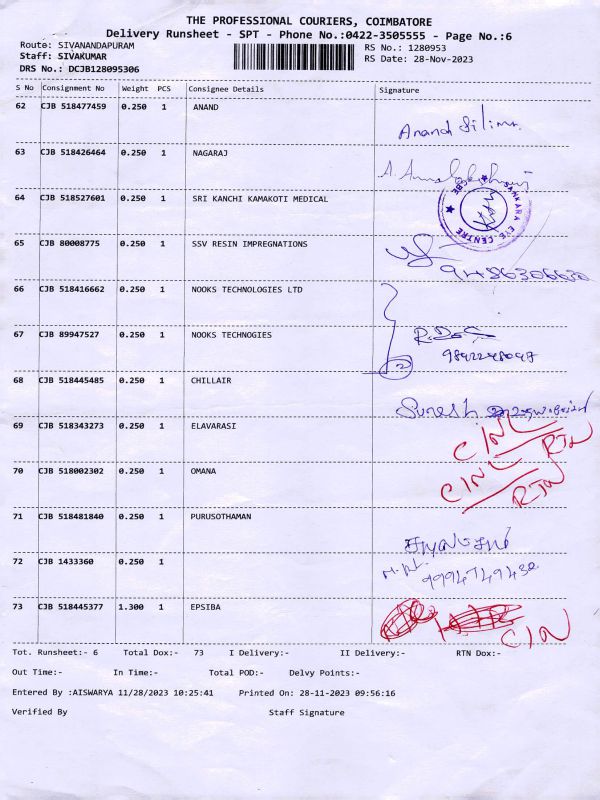 THE PROFESSIONAL COURIERS, COIMBATORE
Delivery Runsheet - SPT - Phone No.:0422-3505555 - Page No.:6
Route: SIVANANDAPURAM RS No.: 1280953
Staff: SIVAKUMAR RS Date: 28-Nov-2023
DRS No.: DCJB128095306
S No Consignment No Weight PCS Consignee Details Signature
62 CJB 518477459 0.250 1 ANAND
Anand
63 CJB 518426464 0.250 1 NAGARAJ
64 CJB 518527601 0.250 1 SRI KANCHI KAMAKOTI MEDICAL
SANKARA EYE CENTRE CBE
65 CJB 80008775 0.250 1 SSV RESIN IMPREGNATIONS
9486306630
66 CJB 518416662 0.250 1 NOOKS TECHNOLOGIES LTD
67 CJB 89947527 0.250 1 NOOKS TECHNOGIES
2
68 CJB 518445485 0.250 1 CHILLAIR
Suresh
69 CJB 518343273 0.250 1 ELAVARASI
C/NL RTN
70 CJB 518002302 0.250 1 OMANA
C/NL RTN
71 CJB 518481840 0.250 1 PURUSOTHAMAN
72 CJB 1433360 0.250 1
9994749432
73 CJB 518445377 1.300 1 EPSIBA
C/N
Tot. Runsheet:- 6 Total Dox:- 73 I Delivery:- II Delivery:- RTN Dox:-
Out Time:- In Time:- Total POD:- Delvy Points:-
Entered By :AISWARYA 11/28/2023 10:25:41 Printed On: 28-11-2023 09:56:16
Verified By Staff Signature